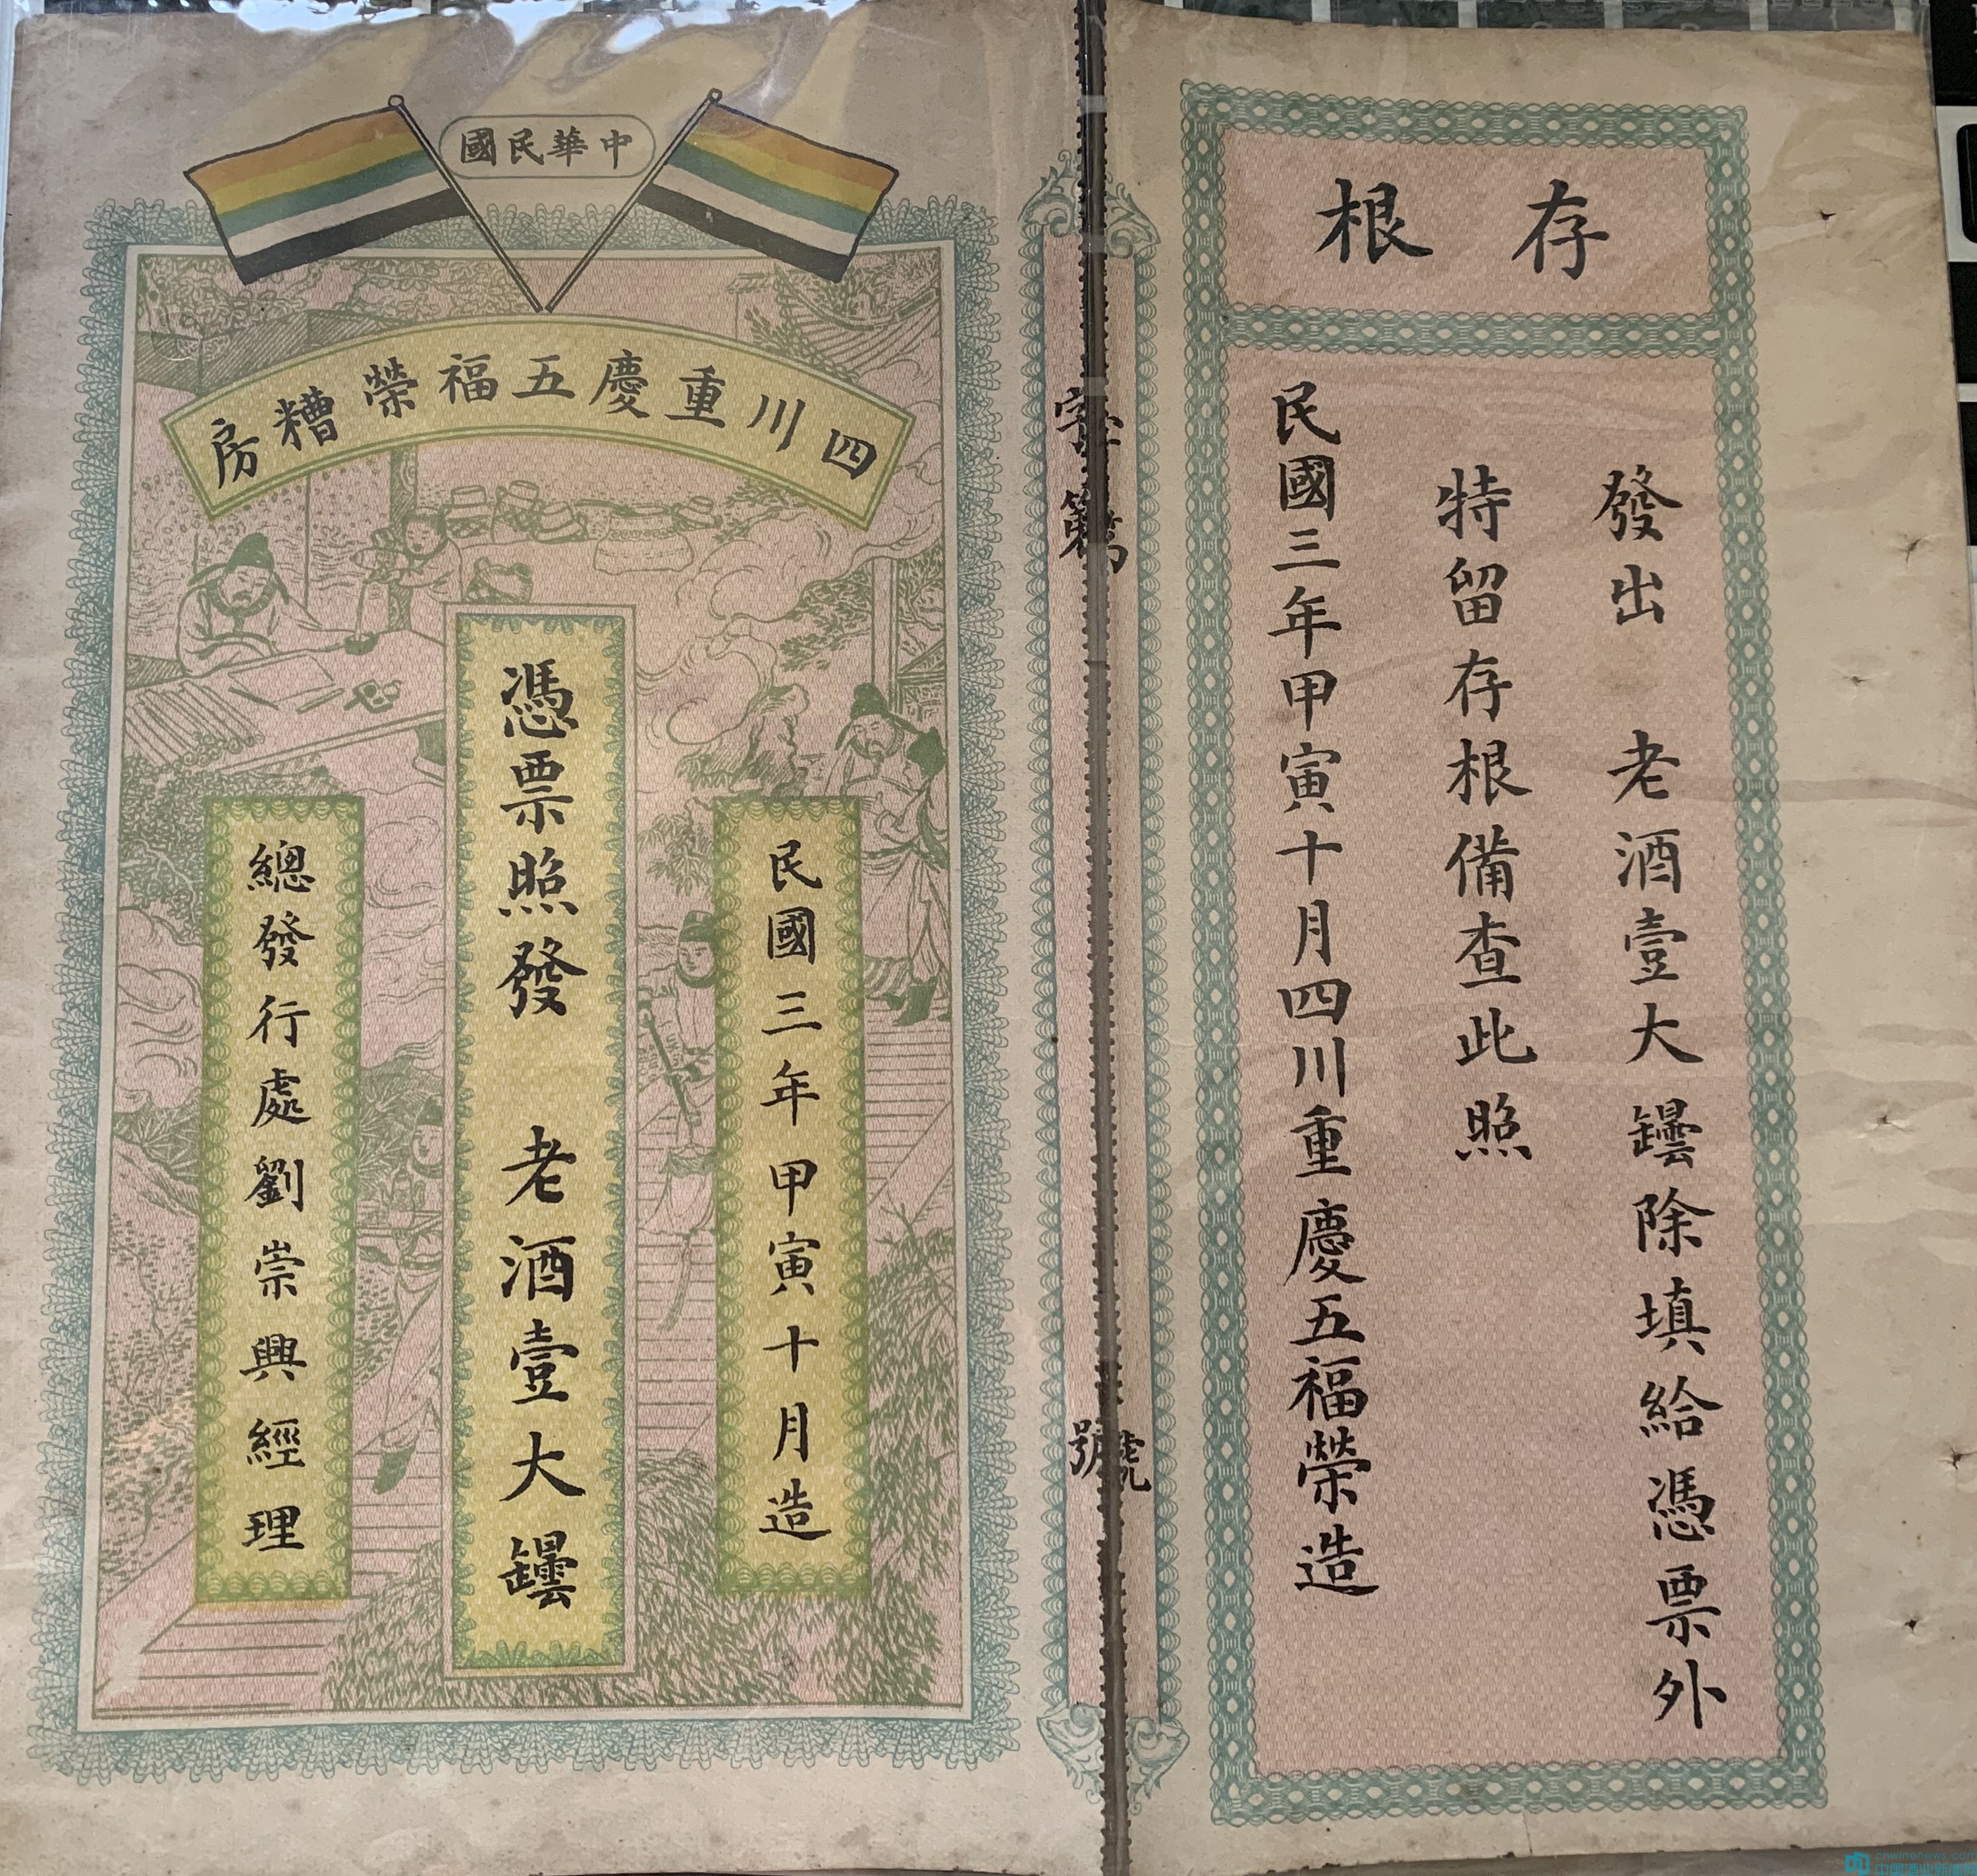 存根
發出　老酒壹大罎除填給憑票外
特留存根備查此照
民國三年甲寅十月四川重慶五福榮造
字第　號
中華民國
四川重慶五福榮糟房
民國三年甲寅十月造
憑票照發　老酒壹大罎
總發行處劉崇興經理
cnwinenews.com
中国酒业新闻网